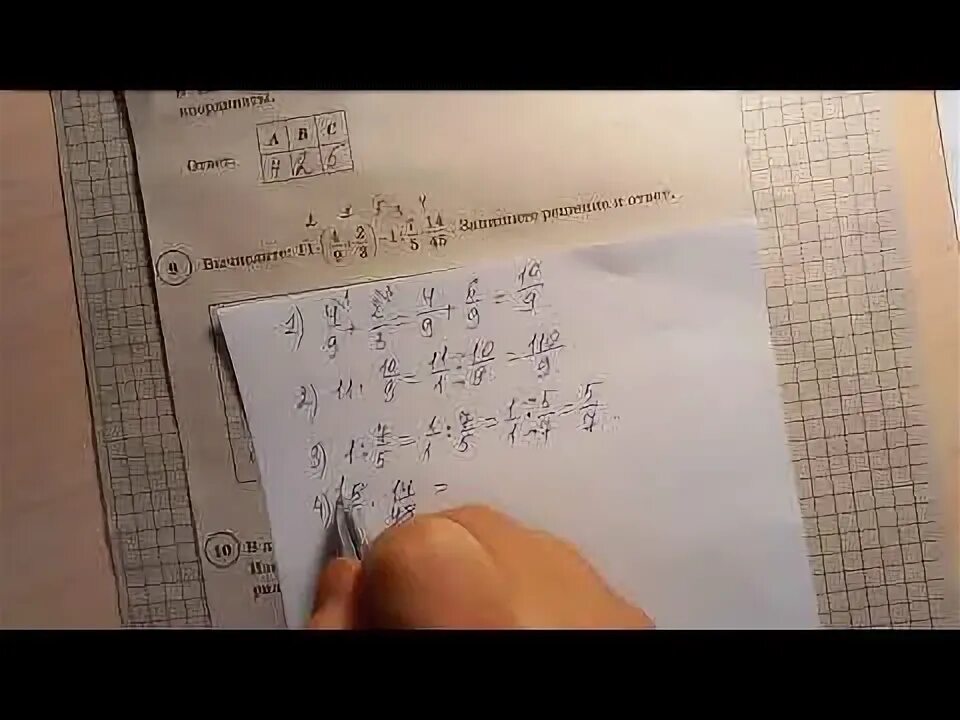 координаты.
A B C
Ответ: 4 2 5
9 Вычислите: 11·(4/9+2/3)−1:7/5·14/45. Запишите решение и ответ.
1) 4/9 + 2/3 = 4/9 + 6/9 = 10/9
2) 11· 10/9 = 11/1 · 10/9 = 110/9
3) 1: 7/5 = 1/1 : 7/5 = 1/1 · 5/7 = 5/7
4) 5 · 14/45 =
10